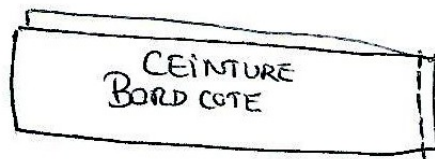 CEiNTURE
BORD COTE